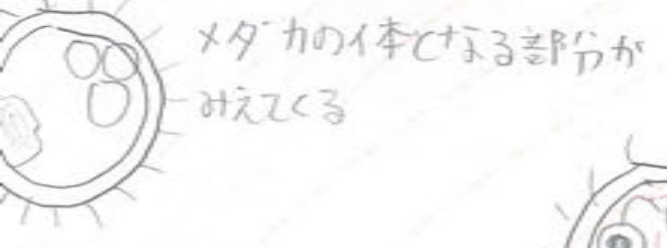 メダカの体となる部分が
みえてくる